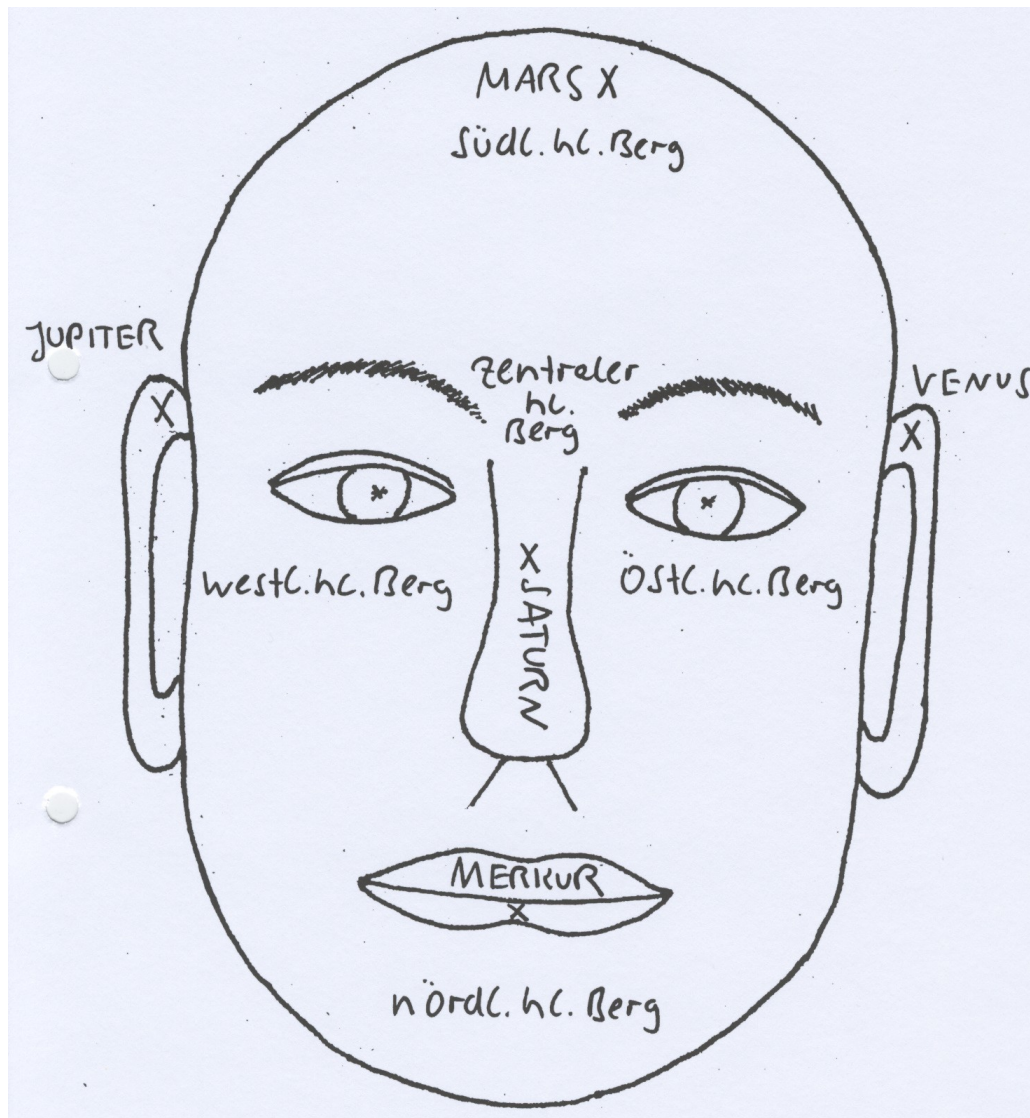 MARS X
südl. hl. Berg
JUPITER
X
VENUS
X
zentraler
hl.
Berg
westl. hl. Berg
X SATURN
östl. hl. Berg
MERKUR
X
nördl. hl. Berg